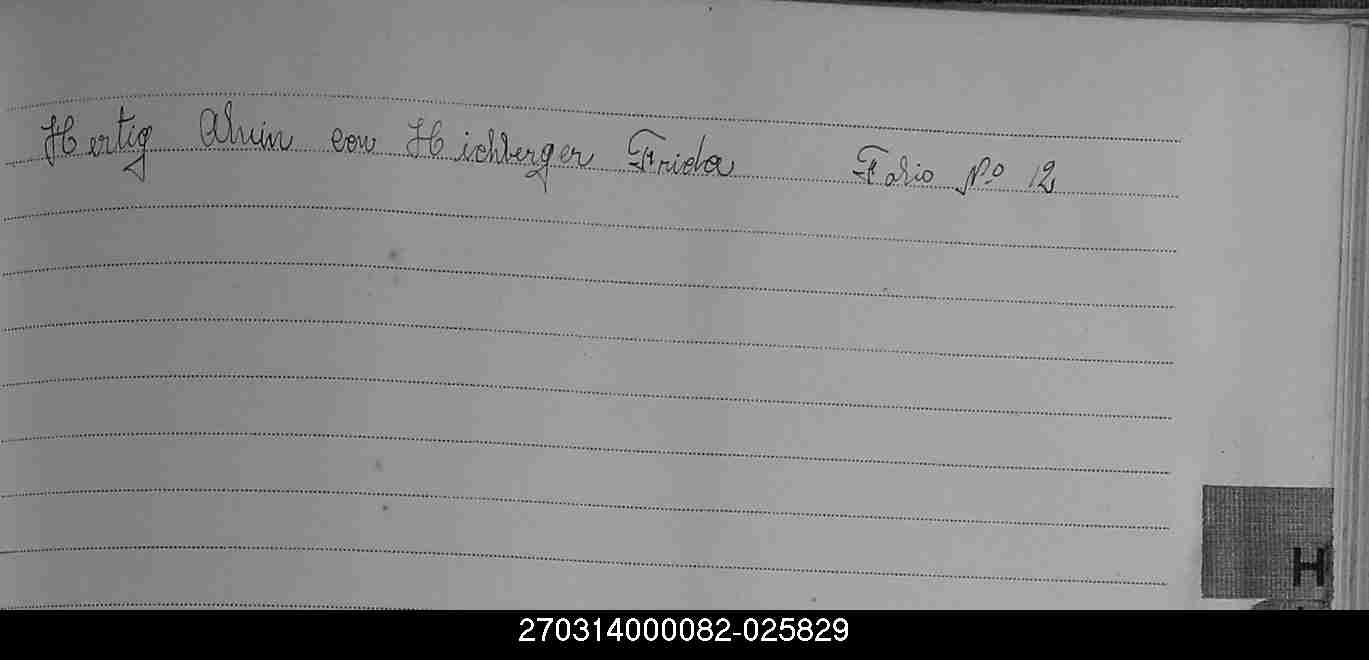 Hertig Alwin con Hichberger Frida Folio Nº 12
H
270314000082-025829